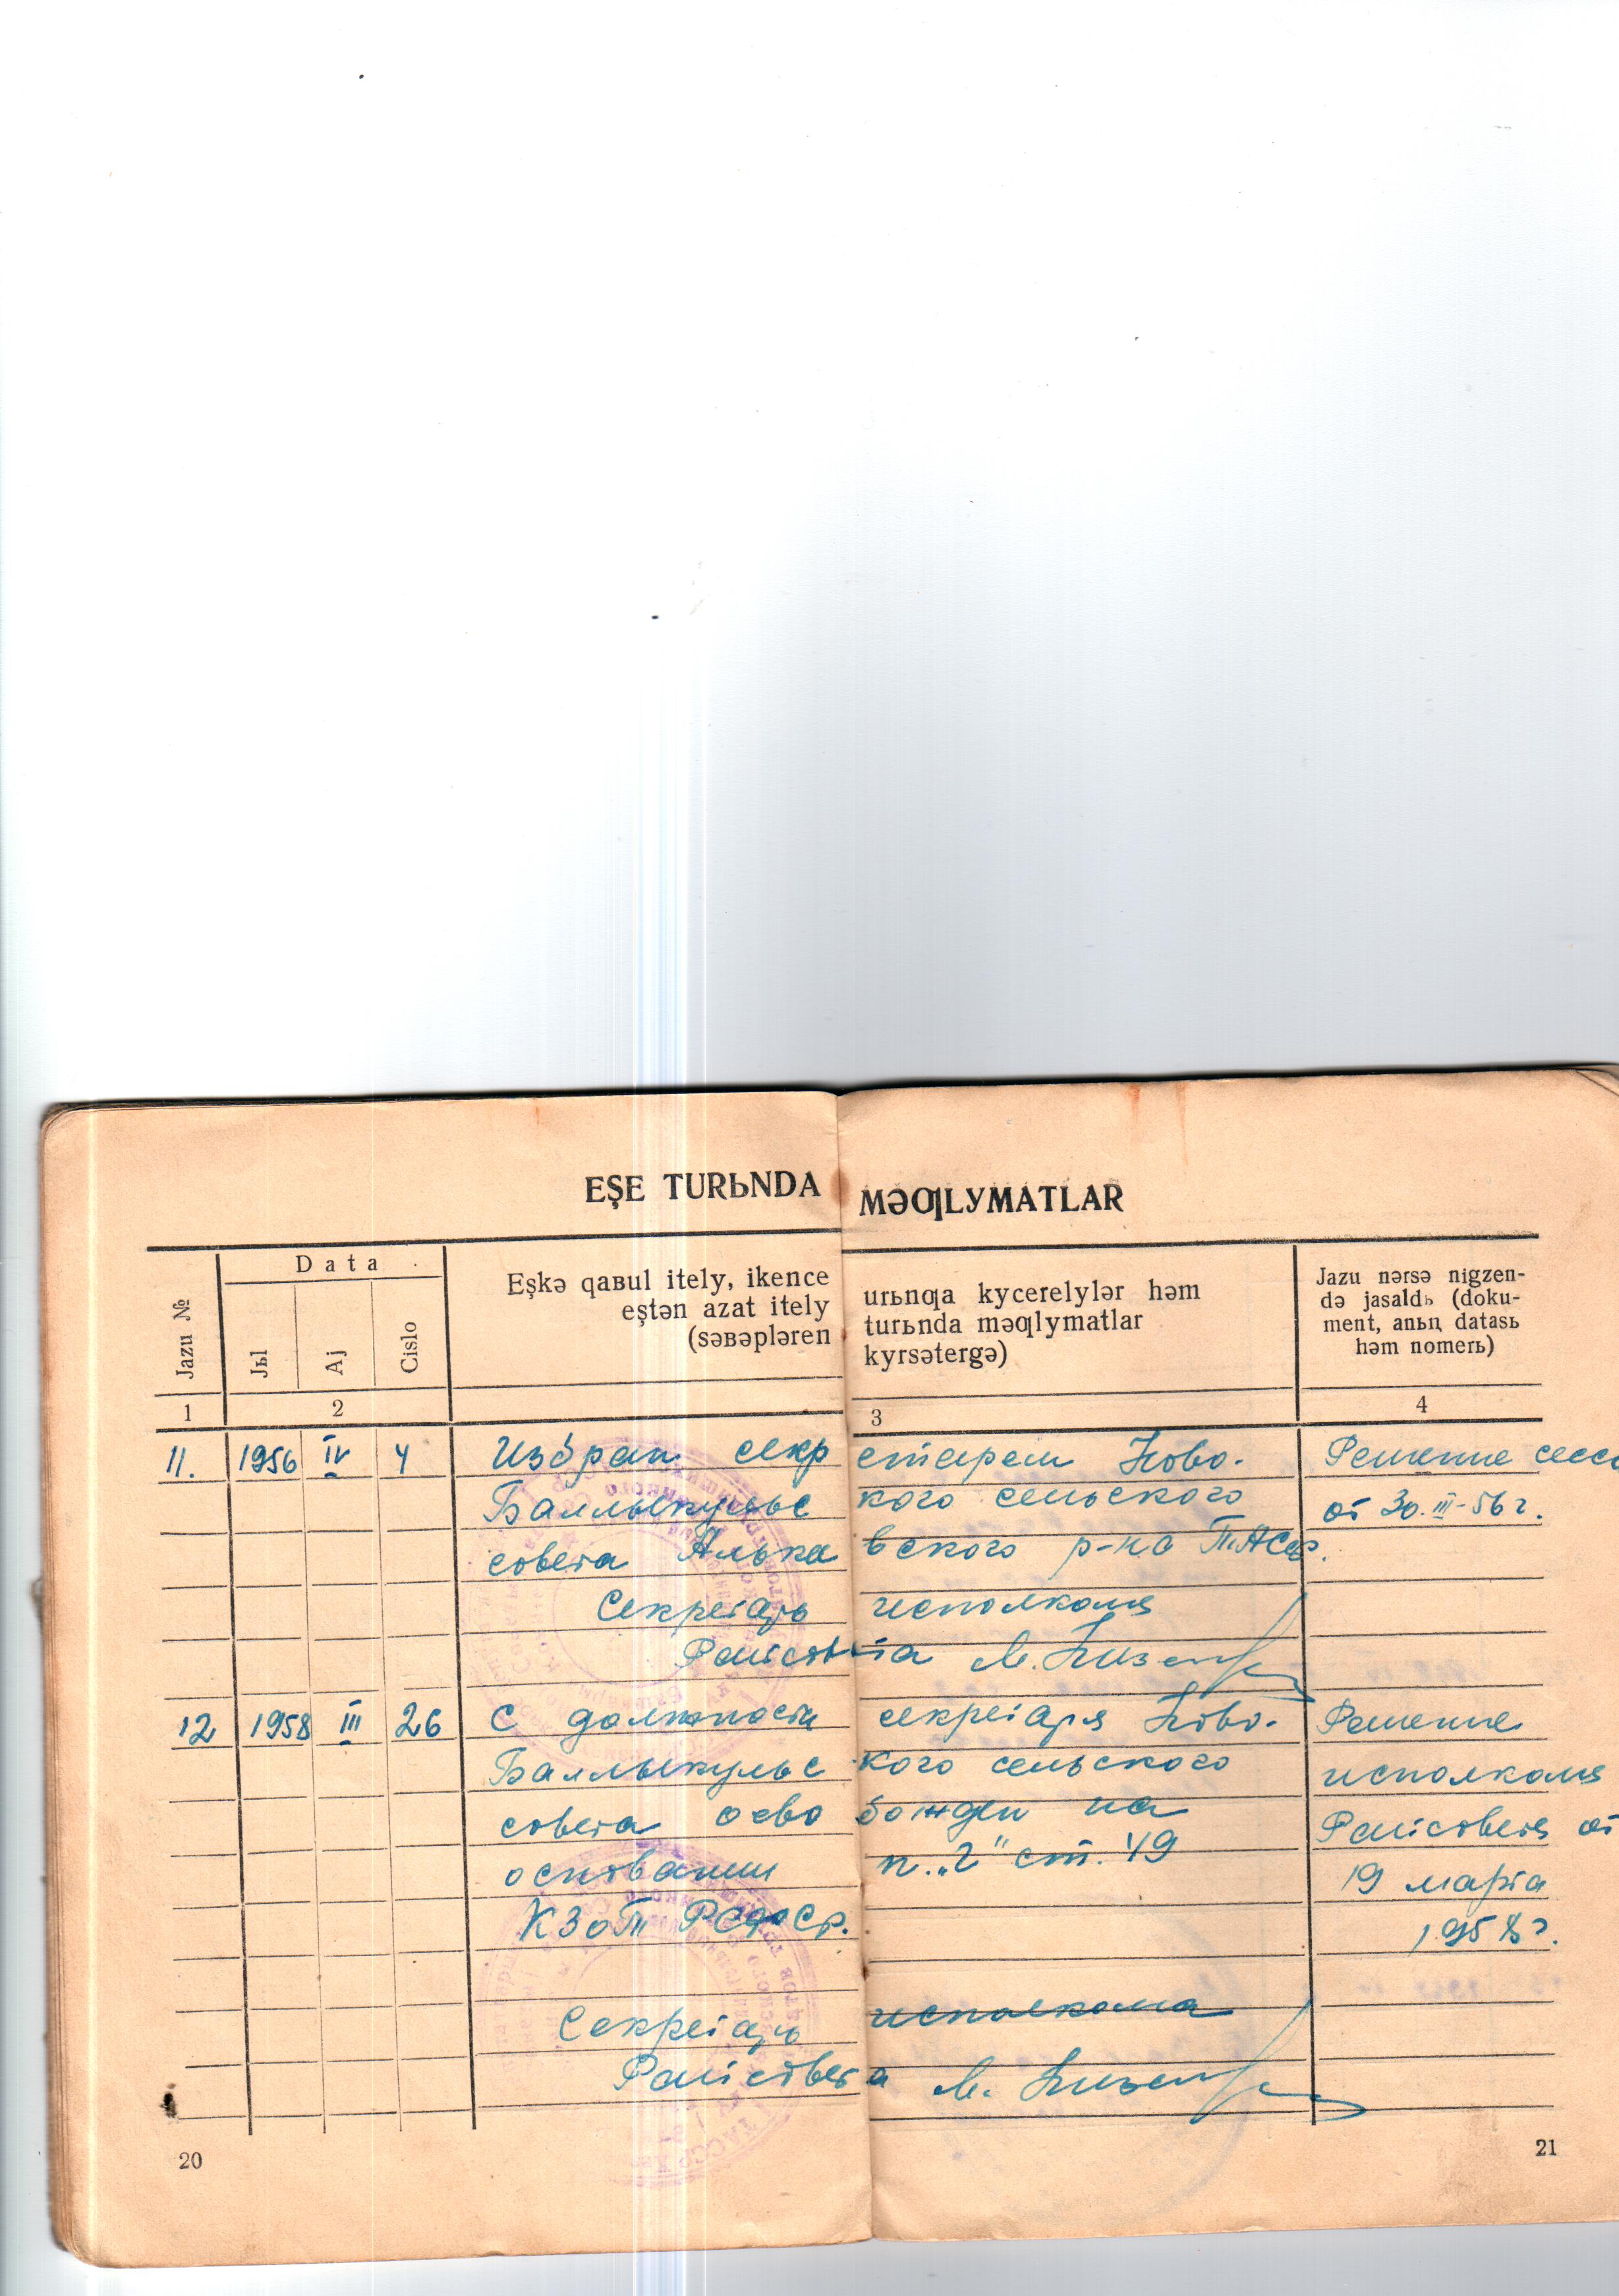 EŞE TURЬNDA MƏƢLYMATLAR
Jazu №
Data
Jьl
Aj
Cislo
Eşkə qaʙul itely, ikence urьnƣa kycerelylər həm
eştən azat itely turьnda məƣlymatlar
(səʙəpləren kyrsətergə)
Jazu nərsə nigzen-
də jasaldь (doku-
ment, anьꞑ datasь
həm nomerь)
1 2 3 4
11. 1956 IV 4 Избран секретарем Ново- Решение сесс
Баллыкульского сельского от 30.III-56 г.
совета Алькеевского р-на Т.АССР.
Секретарь исполкома
Райсовета М.
12 1958 III 26 С должности секретаря Ново- Решение
Баллыкульского сельского исполкома
совета освобожден на Райсовета от
основании п. „г" ст. 49 19 марта
КЗоТ РСФСР. 1958 г.
Секретарь исполкома
Райсовета М.
20 21